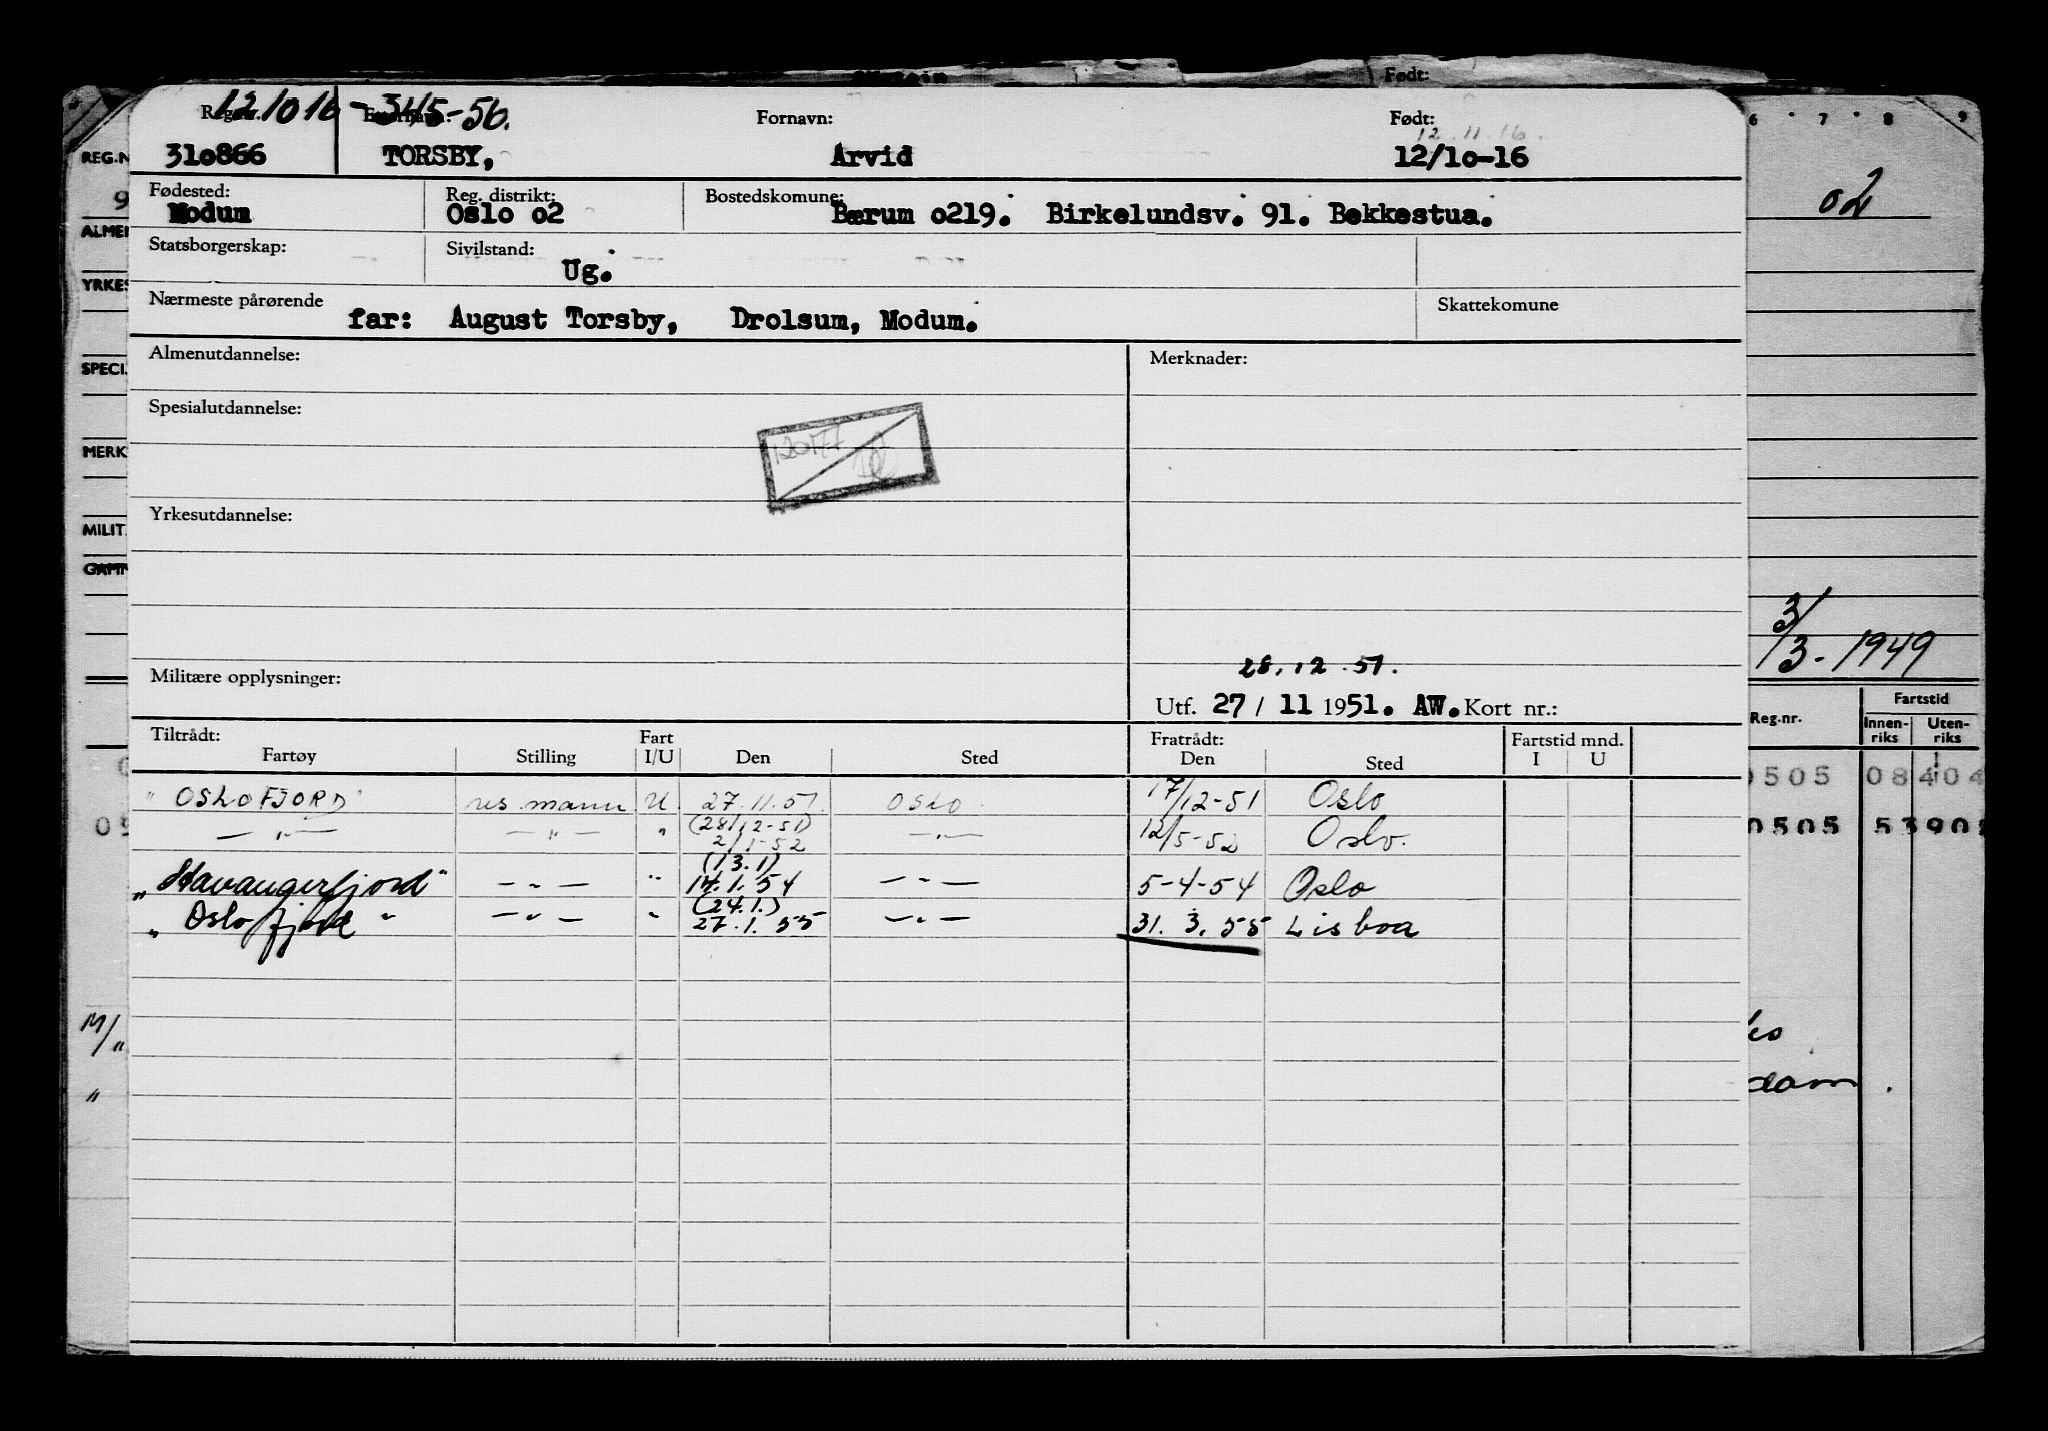 Født:
121016-345-56.
Reg. nr. Etternavn: Fornavn: Født:
12.11.16.
310866 TORSBY, Arvid 12/10-16
Fødested: Reg. distrikt: Bostedskomune:
Modum Oslo 02 Bærum 0219. Birkelundsv. 91. Bekkestua.
Statsborgerskap: Sivilstand:
Ug.
Nærmeste pårørende Skattekomune
far: August Torsby, Drolsum, Modum.
Almenutdannelse: Merknader:
Spesialutdannelse:
120177
Yrkesutdannelse:
Militære opplysninger:
28.12.51.
Utf. 27 / 11 1951. AW. Kort nr.:
Tiltrådt: Fart Fratrådt: Fartstid mnd.
Fartøy Stilling I/U Den Sted Den Sted I U
"OSLOFJORD" res. mann U 27.11.51. OSLO 17/12-51 Oslo
— " — — " — " (28/12-51) — " — 12/5-52 Oslo.
2/1-52
(13.1)
"Stavangerfjord" — " — " 14.1.54 — " — 5-4-54 Oslo
(24.1.)
"Oslofjord" — " — " 27.1.55 — " — 31.3.55 Lisboa
REG.N
9
ALMEN
YRKES
SPECI
MERK
MILIT
GAMM
05
M/
"
6 7 8 9
02
3/3-1949
Reg.nr. Fartstid
Innen-riks Uten-riks
0505 08404
0505 5390
dam